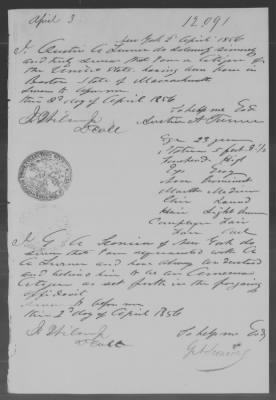 April 3
12,091
New York 2 April 1856
I Austin A Turner do solemnly sincerely
and truly swear that I am a citizen of
the United States having been born in
Boston State of Massachusetts
Sworn to before me
this 2d day of April 1856
So help me God
Austin A Turner
Age 23 years
Stature 5 feet
Forehead High
Eyes Grey
Nose Prominent
Mouth Medium
Chin Round
Hair Light Brown
Complexion Fair
Face Oval
I of New York do
swear that I am acquainted with
A Turner and have always understood
and believe him to be an American
Citizen as set forth in the foregoing
affidavit
Sworn to before me
this 2d day of April 1856
So help me God